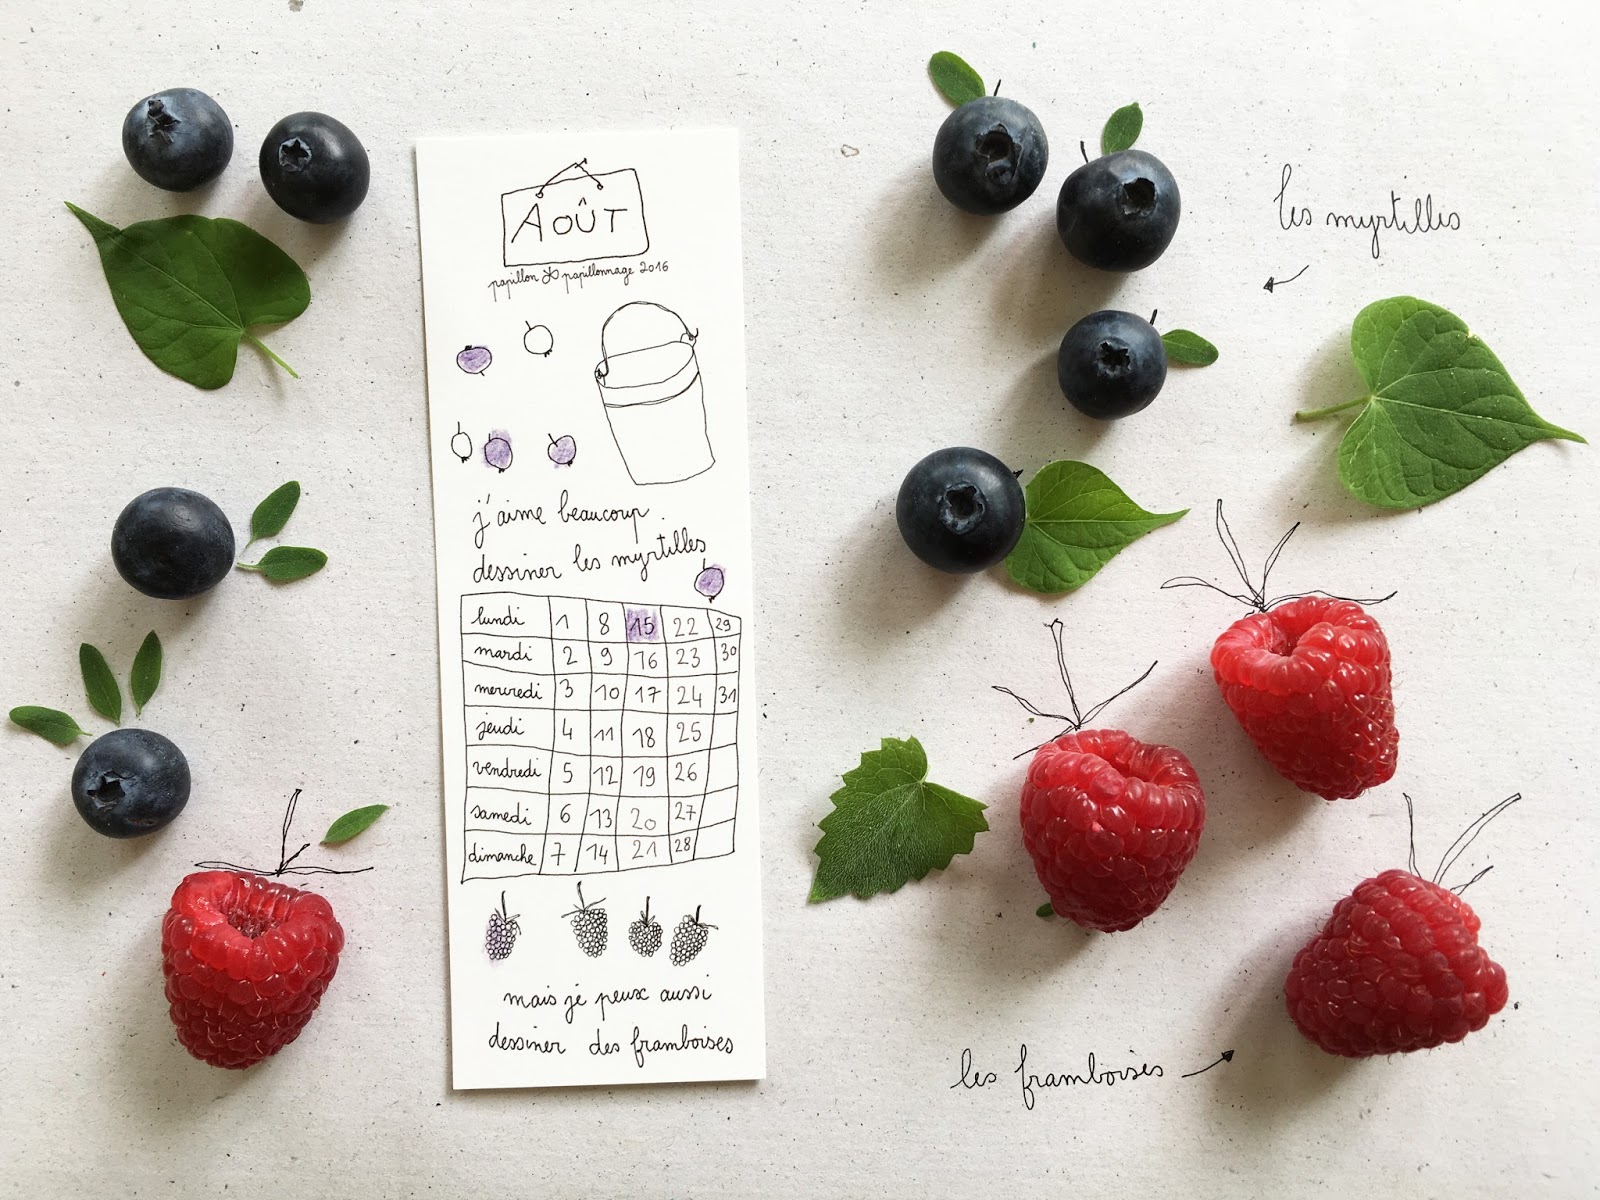 AOÛT
papillon papillonnage 2016
j'aime beaucoup
dessiner les myrtilles
lundi 1 8 15 22 29
mardi 2 9 16 23 30
mercredi 3 10 17 24 31
jeudi 4 11 18 25
vendredi 5 12 19 26
samedi 6 13 20 27
dimanche 7 14 21 28
mais je peux aussi
dessiner des framboises
les myrtilles
les framboises